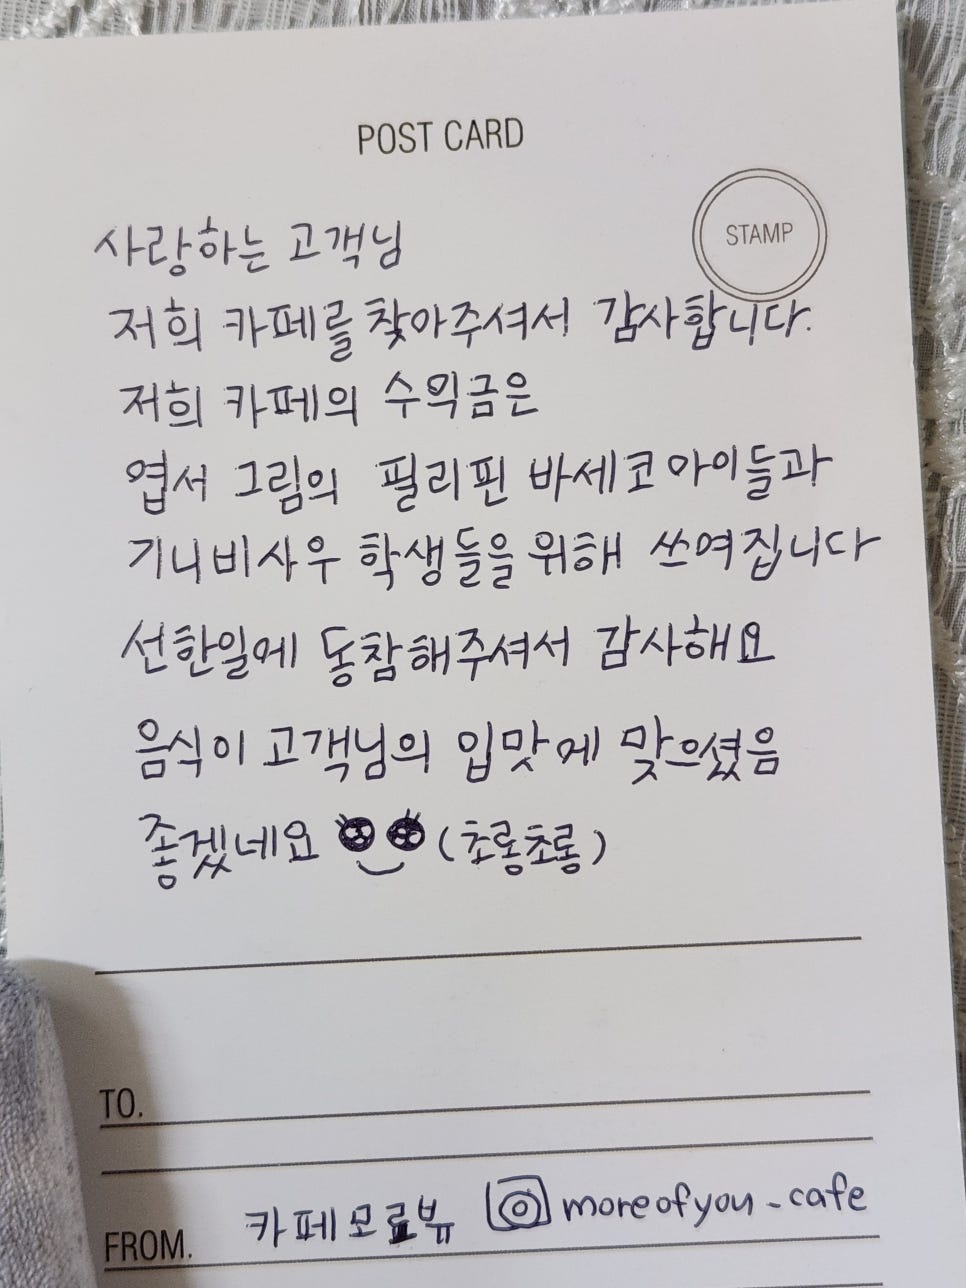 POST CARD
STAMP
사랑하는 고객님
저희 카페를 찾아주셔서 감사합니다.
저희 카페의 수익금은
엽서 그림의 필리핀 바세코 아이들과
기니비사우 학생들을 위해 쓰여집니다
선한일에 동참해주셔서 감사해요
음식이 고객님의 입맛에 맞으셨음
좋겠네요 (초롱초롱)
TO.
FROM. 카페모르뷰 moreofyou_cafe